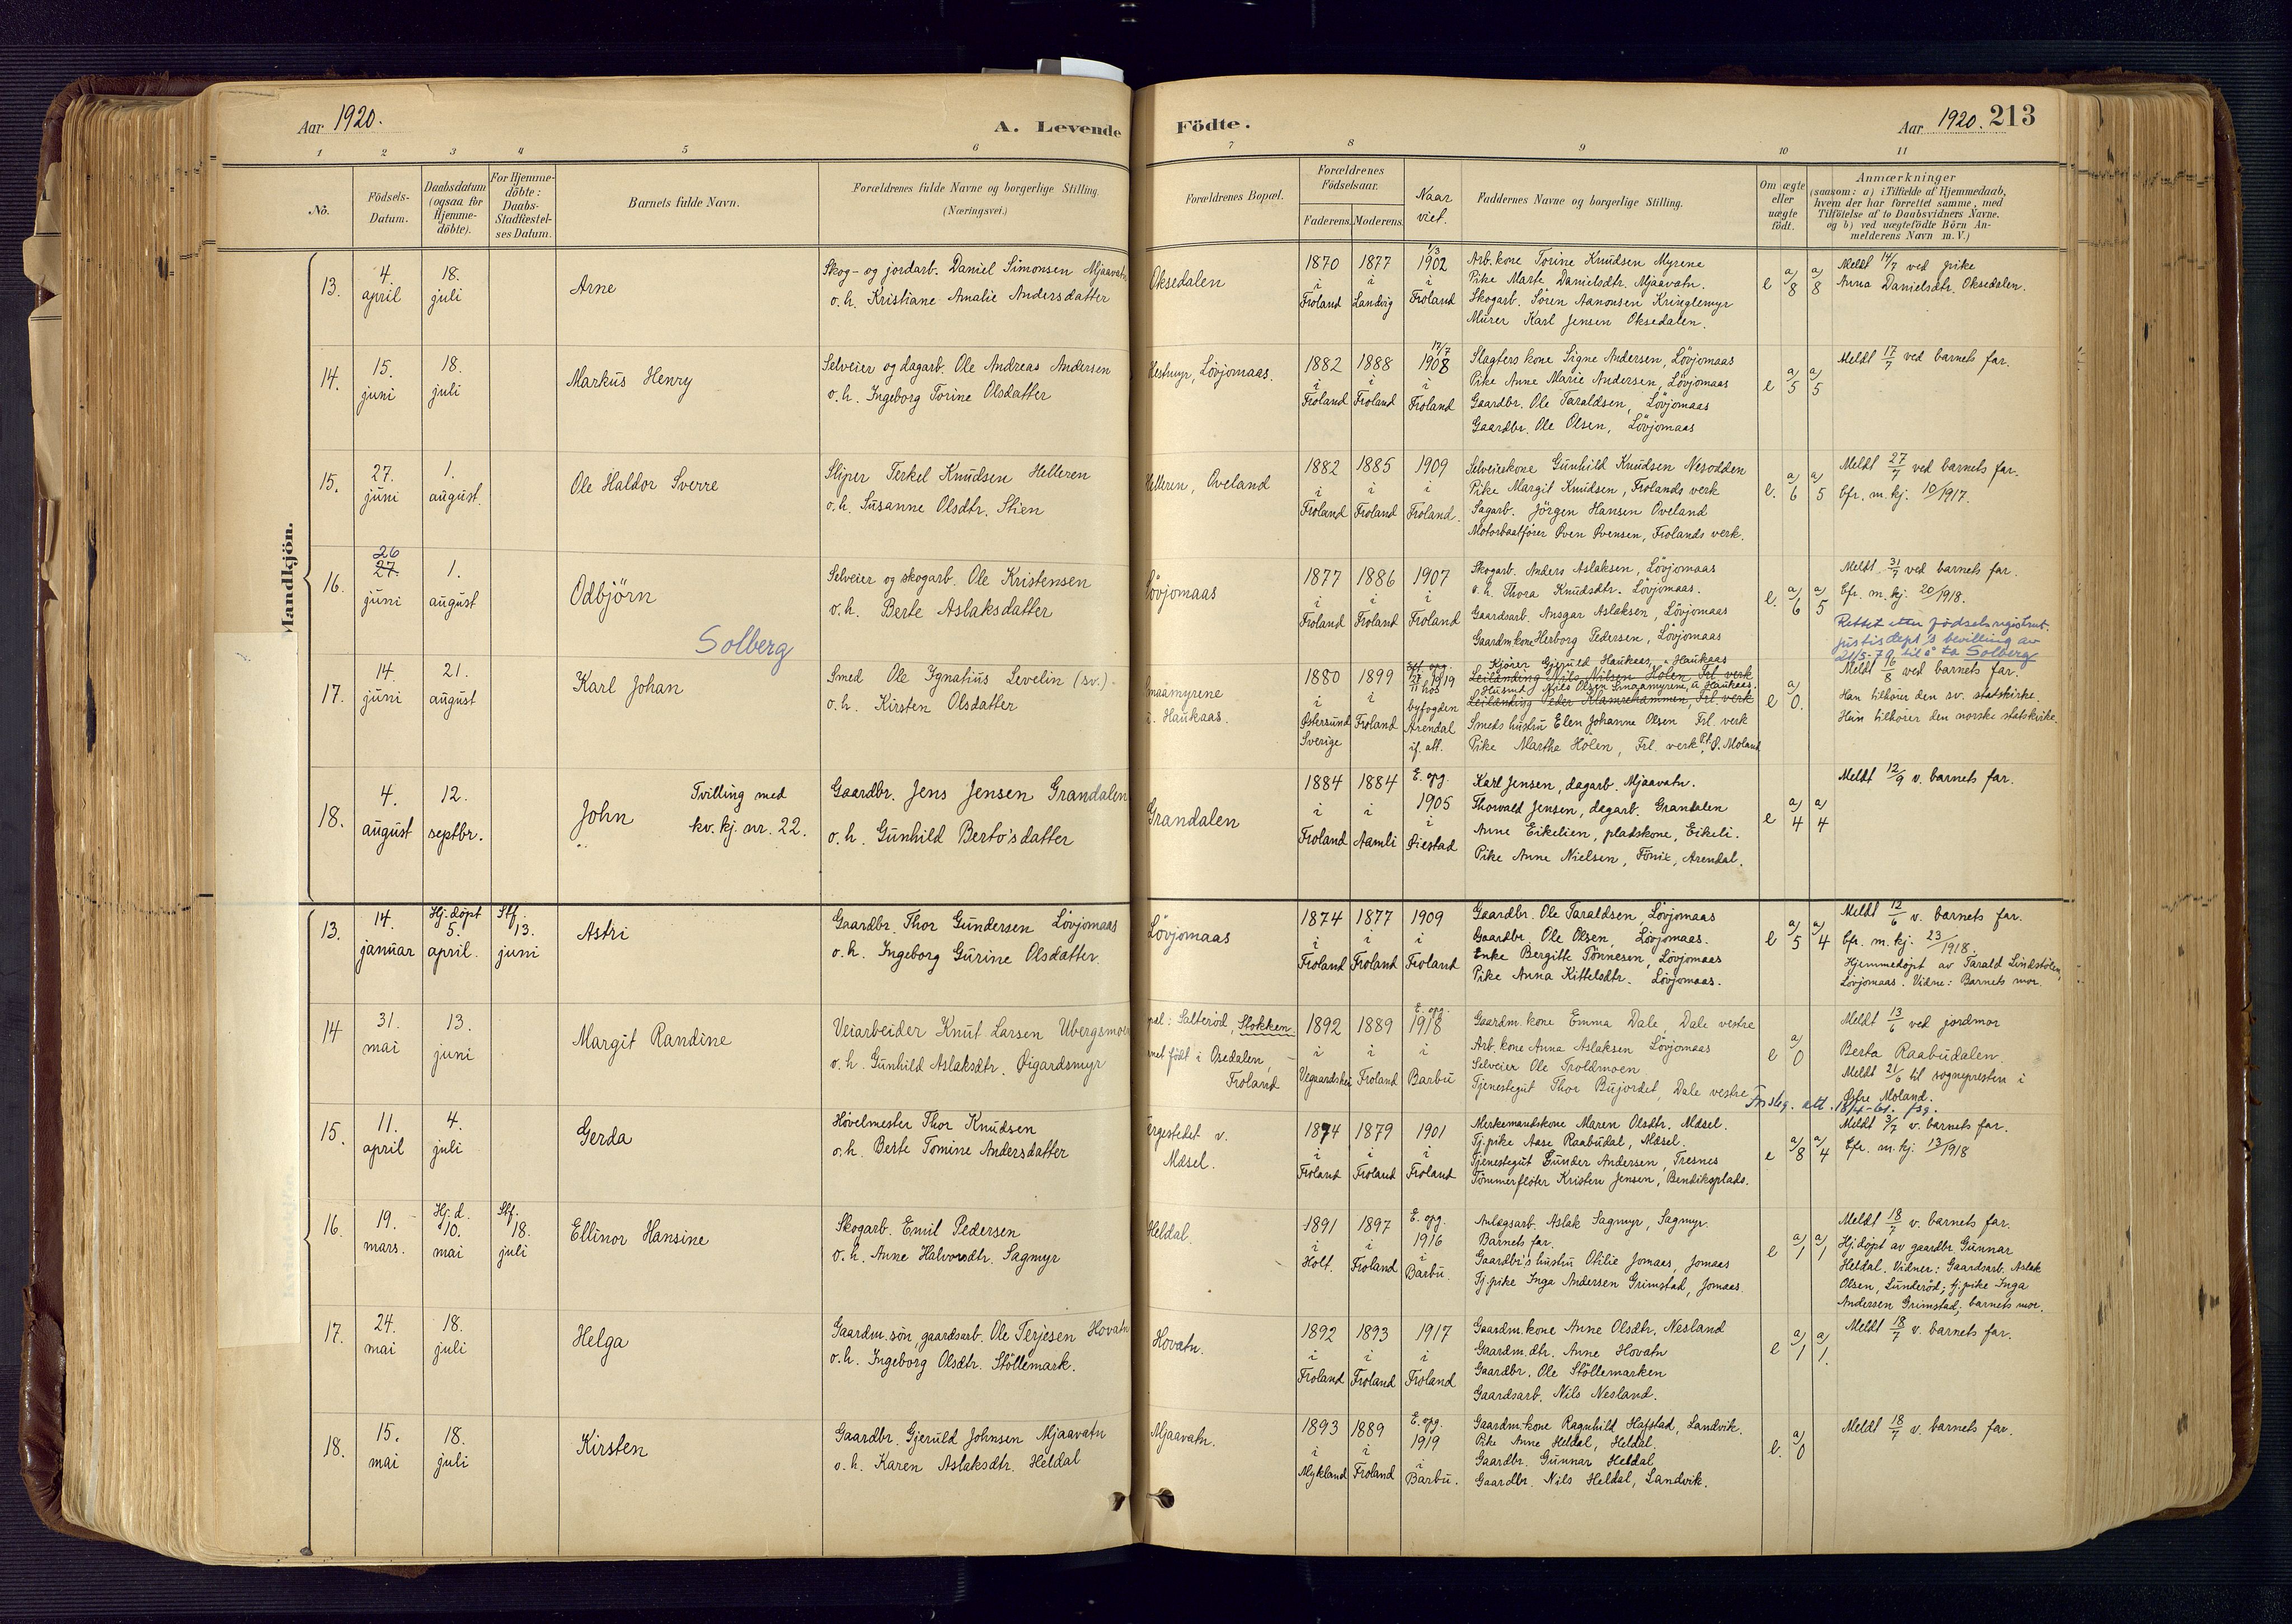 Aar 1920.
A. Levende Födte.
Aar 1920. 213
1 2 3 4 5 6 7 8 9 10 11
No.
Födsels-Datum.
Daabsdatum (ogsaa for Hjemme-döbte).
For Hjemme-döbte: Daabs-Stadfæstel-ses Datum.
Barnets fulde Navn.
Forældrenes fulde Navne og borgerlige Stilling.
(Næringsvei.)
Forældrenes Bopæl.
Forældrenes Födselsaar.
Faderens. Moderens.
Naar viet.
Faddernes Navne og borgerlige Stilling.
Om ægte eller uægte födt.
Anmærkninger
(saasom: a) i Tilfælde af Hjemmedaab, hvem der har forrettet samme, med Tilföielse af to Daabsvidners Navne. og b) ved uægtefödte Börn An-melderens Navn m. V.)
Mandkjön.
13. 4. april 18. juli
Arne
Skog- og jordarb. Daniel Simonsen Mjaavatn
o. h. Kristiane Amalie Andersdatter
Oksedalen
1870 i Froland 1877 i Landvig 1/3 1902 i Froland
Arb. kone Torine Knudsen Myrene
Pike Marte Danielsdtr. Mjaavatn.
Skogarb. Sören Aanonsen Kringlemyr
Murer Karl Jensen Oksedalen.
e a/8 a/8
Meldt 14/7 ved pike
Anna Danielsdtr. Oksedalen.
14. 15. juni 18. juli
Markus Henry
Selveier og dagarb. Ole Andreas Andersen
o. h. Ingeborg Torine Olsdatter
Hestmyr, Lövjomaas.
1882 i Froland 1888 i Froland 17/7 1908 i Froland
Slagters kone Signe Andersen, Lövjomaas
Pike Anne Marie Andersen, Lövjomaas
Gaardbr. Ole Taraldsen, Lövjomaas
Gaardbr. Ole Olsen, Lövjomaas
e a/5 a/5
Meldt 17/7 ved barnets far.
15. 27. juni 1. august.
Ole Haldor Sverre
Sliper Terkel Knudsen Helleren
o. h. Susanne Olsdtr. Stien
Helleren, Oveland
1882 i Froland 1885 i Froland 1909 i Froland.
Selveierkone Gunhild Knudsen Nesodden
Pike Margit Knudsen, Frolands verk
Sagarb. Jörgen Hansen Oveland
Motorbaatförer Oven Ovensen, Frolands verk.
e. a/6 a/5
Meldt 27/7 ved barnets far.
Cfr. m. kj. 10/1917.
16. 26 27. juni 1. august
Odbjörn
Solberg
Selveier og skogarb. Ole Kristensen
o. h. Berte Aslaksdatter
Lövjomaas
1877 i Froland 1886 i Froland 1907 i Froland
Skogarb. Anders Aslaksen, Lövjomaas
o. h. Thora Knudsdtr. Lövjomaas.
Gaardsarb. Ansgar Aslaksen, Lövjomaas
Gaardm.kone Herborg Pedersen, Lövjomaas
e. a/6 a/5
Meldt 31/7 ved barnets far.
Cfr. m. kj. 20/1918.
Rettet etter födselsregistret.
Justisdept's bevilling av
21/5-79 til å ta Solberg
17. 14. juni 21. august
Karl Johan
Smed Ole Ignatius Levelin (sv.)
o. h. Kirsten Olsdatter
Smaamyrene i. Haukaas.
1880 i Östersund Sverige 1899 i Froland 1919 hos byfogden Arendal if. att.
Kjörer Gjeruld Haukaas, Haukaas
Leilænding Nils Nilsen Holen Frl. verk
Husmd. Nils Olsen Smaamyrene, Haukaas.
Leilænding Peder Klamrehammen, Frl. verk
Smeds hustru Elen Johanne Olsen Frl. verk
Pike Martha Holen, Frl. verk, P.t. Ö. Moland
e a/0.
Meldt 16/8 ved barnets far.
Han tilhörer den sv. statskirke.
Hun tilhörer den norske statskirke.
18. 4. august 12. septbr.
John
Tvilling med
kv. kj. nr. 22.
Gaardbr. Jens Jensen Grandalen
o. h. Gunhild Berto'sdatter
Grandalen
1884 i Froland 1884 i Aamli E. opg. 1905 i Öiestad
Karl Jensen, dagarb. Mjaavatn.
Thorvald Jensen, dagarb. Grandalen
Anne Eikelien, pladskone, Eikeli.
Pike Anne Nielsen, Fönix, Arendal.
e a/4 a/4
Meldt 12/9 v. barnets far.
13. 14. januar Hj. döpt 5. april. Stf. 13. juni
Astri
Gaardbr. Thor Gundersen Lövjomaas
o. h. Ingeborg Gurine Olsdatter.
Lövjomaas
1874 i Froland 1877 i Froland 1909 i Froland
Gaardbr. Ole Taraldsen Lövjomaas
Gaardbr. Ole Olsen, Lövjomaas.
Enke Bergitte Tönnesen, Lövjomaas
Pike Anna Kittelsdtr. Lövjomaas.
e a/5 a/4
Meldt 12/6 v. barnets far.
Cfr. m. kj. 23/1918.
Hjemmedöpt av Tarald Lindstölen,
Lövjomaas. Vidne: Barnets mor.
14 31. mai 13. juni
Margit Randine
Veiarbeider Knut Larsen Ubergsmoen
o. h. Gunhild Aslaksdtr. Öigardsmyr
Salteröd, Stokken.
født i Osedalen, Froland
1892 i Vegaardshei 1889 i Froland E. opg. 1918 i Barbu
Gaardm. kone Emma Dale, Dale vestre
Arb. kone Anna Aslaksen Lövjomaas
Selveier Ole Troldmoen
Tjenestegut Thor Bujordet, Dale vestre
e a/0
Meldt 13/6 ved jordmor
Berta Raabudalen.
Meldt 21/6 til sognepresten i
Östre Moland.
15. 11. april 4. juli
Gerda
Hövelmester Thor Knudsen
o. h. Berte Tomine Andersdatter
v. Mæsel.
1874 i Froland 1879 i Froland 1901 i Froland
Merkemandskone Maren Olsdtr. Mæsel.
Tj. pike Aase Raabudal, Mæsel.
Tjenestegut Gunder Andersen, Tresnes
Tömmerflöter Kristen Jensen, Bendiksplads.
e a/8 a/4
Meldt 3/7 v. barnets far.
Cfr. m. kj. 13/1918
16. 19. mars. Hj. d. 10. mai Stf. 18. juli
Ellinor Hansine
Skogarb. Emil Pedersen
o. h. Anne Halvorsdtr. Sagmyr
Heldal.
1891 i Holt. 1897 i Froland E. opg. 1916 i Barbu.
Anlægsarb. Aslak Sagmyr, Sagmyr.
Barnets far.
Gaardbr's hustru Otilie Jomaas, Jomaas
Tj. pike Inga Andersen Grimstad, Jomaas.
e a/1 a/1
Meldt 18/7 v. barnets far.
Hj. döpt av gaardbr. Gunnar
Heldal. Vidner: Gaardsarb. Aslak
Olsen, Lunderöd; tj. pike Inga
Andersen Grimstad, barnets mor.
17. 24. mai 18. juli
Helga
Gaardm. sön, gaardsarb. Ole Terjesen Hovatn
o. h. Ingeborg Olsdtr. Stöllemark.
Hovatn.
1892 i Froland 1893 i Froland 1917 i Froland
Gaardm. kone Anne Olsdtr. Nesland
Gaardm. dtr. Anne Hovatn
Gaardbr. Ole Stöllemarken
Gaardsarb. Nils Nesland.
e a/1 a/1.
Meldt 18/7 v. barnets far.
18. 15. mai 18. juli
Kirsten
Gaardbr. Gjeruld Johnsen Mjaavatn
o. h. Karen Aslaksdtr. Heldal
Mjaavatn.
1893 i Mykland 1889 i Froland E. opg. 1919 i Barbu.
Gaardm-kone Ragnhild Hafstad, Landvik.
Pike Anne Heldal, Heldal.
Gaardbr. Gunnar Heldal
Gaardbr. Nils Heldal, Landvik.
e. a/0
Meldt 18/7 v. barnets far.